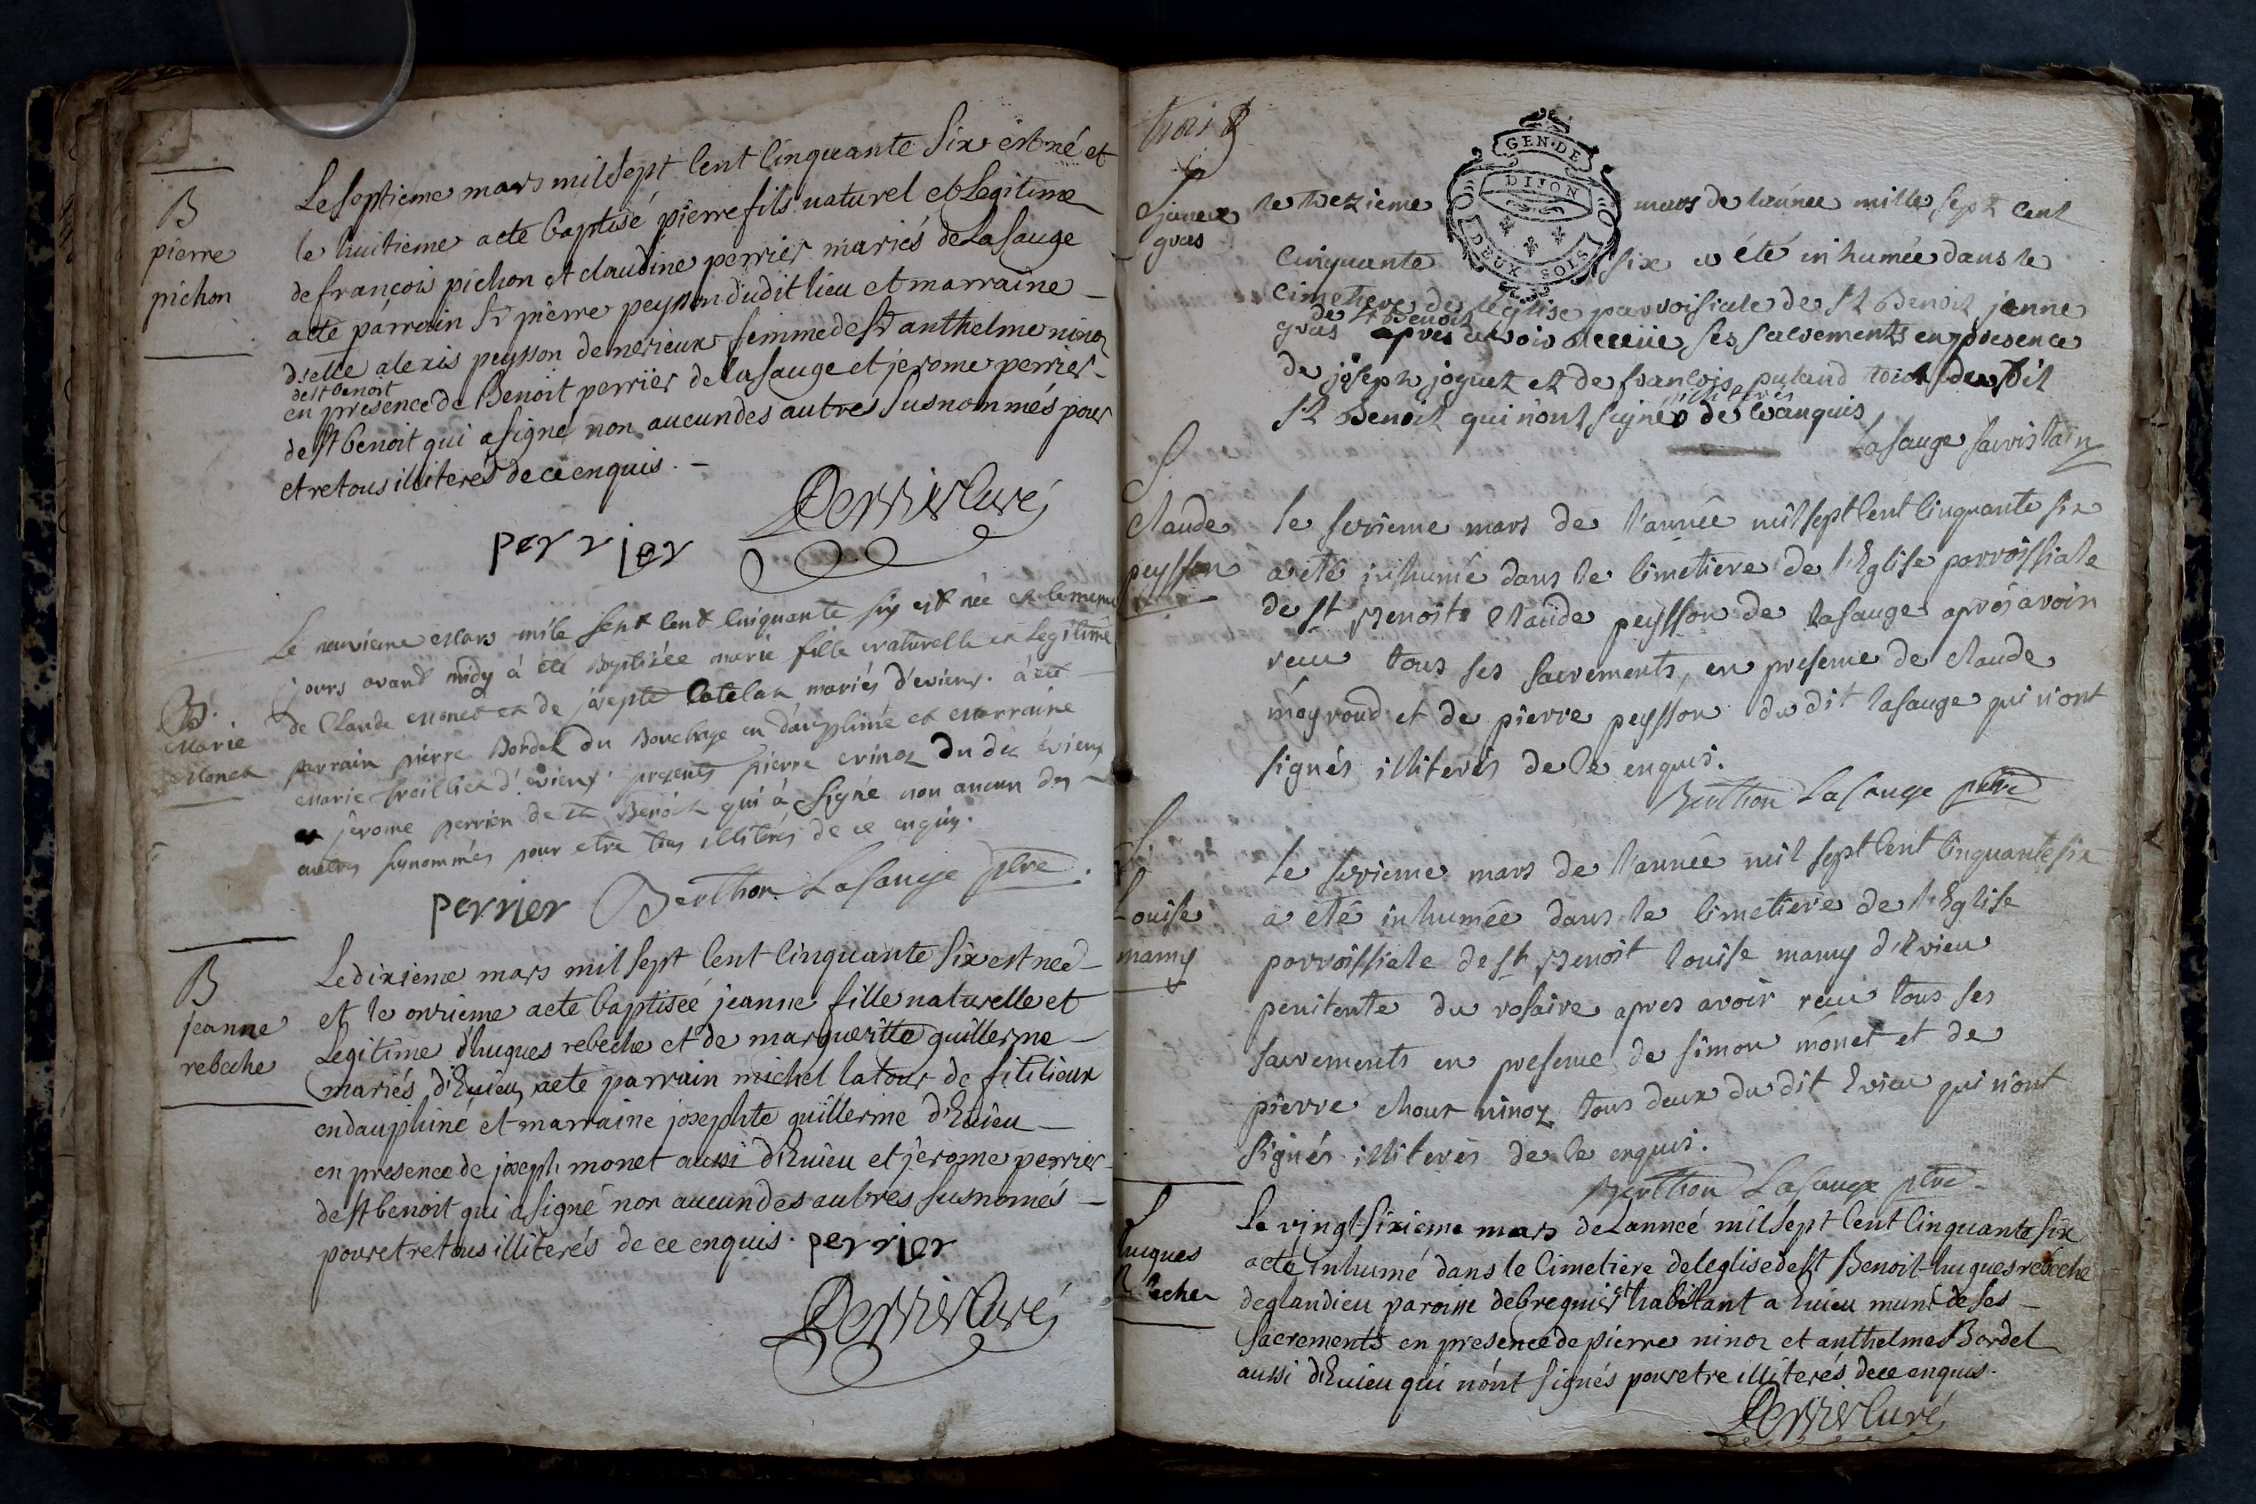 B
pierre
pichon
Le septieme mars mil sept Cent Cinquante Six est né et
le huitieme a ete baptisé pierre fils naturel et Legitime
de françois pichon et claudine perrier mariés de Lasauge
a ete parrain Sr pierre peysson dudit lieu et marraine
dselle alexis peysson de merieux femme de Sr anthelme ninoz
de st benoit
en presence de Benoit perrier de lasauge et jerome perrier
de st benoit qui a signé non aucun des autres susnommés pour
etre tous illiterés de ce enquis. –
Perrier Curé
perrier
B.
Marie
Monet
Le neuvieme mars mile sept cent cinquante six est née et le meme
jours avant midy à été Baptizée marie fille naturelle et legitime
de Claude Monet et de josepte Catelan mariés d'evieux. à été
parrain pierre Bordel du Bouchage en dauphiné et marraine
Marie d'évieux. presents pierre du dit évieux
et jerome perrier de st Benoit qui à signé non aucun des
autres susnommés pour etre tous illiterés de ce enquis.
perrier Berthon Lasauge ptre.
B
jeanne
rebeche
Le dixieme mars mil sept Cent Cinquante Six est née
et le onzieme a ete baptiseé jeanne fille naturelle et
Legitime d'hugues rebeche et de margueritte guillerme
mariés d'Evieu, a ete parrain michel latour de fitilieux
en dauphiné et marraine josephte guillerme d'Evieu
en presence de joseph monet aussi d'Evieu et jerome perrier
de st benoit qui a signé non aucun des autres susnomés
pour etre tous illiterés de ce enquis. perrier
Perrier Curé
trois
GEN. DE
DIJON
DEUX SOLS
S
janne
gras
le trezieme mars de lannée mille sept cent
cinquante six a été inhumée dans le
cimetiere de leglise parroisiale de st Benoit janne
de st Benoit
gras apres avoir receue ses sacrements en presence
de joseph joguet et de françois pu land tous du dit
illiterés
st Benoit qui n'ont signés de ce enquis
Lasauge
S.
Claude
peysson
le sezieme mars de l'année mil sept Cent Cinquante six
a été inhumé dans le Cimetiere de l'Eglise parroissiale
de st Benoit Claude peysson de lasauge apres avoir
reçu tous ses sacrements, en presence de claude
moyroud et de pierre peysson du dit lasauge qui n'ont
signés illiterés de ce enquis.
Berthon Lasauge ptre
S.
Louise
mamy
le sezieme mars de l'année mil sept Cent Cinquante six
a été inhumée dans le Cimetiere de l'Eglise
parroissiale de st Benoit louise mamy d'Evieu
penitente du rosaire apres avoir reçu tous ses
sacrements en presence de simon mónet et de
pierre choux ninoz tous deux du dit Evieu qui n'ont
signés illiterés de ce enquis.
Berthon Lasauge ptre
hugues
Rebeche
Le vingt sixieme mars de Lanneé mil sept Cent Cinquante six
a ete inhumé dans le Cimetiere de leglise de st Benoit hugues rebeche
de glandieu paroisse de bregnier et habitant a Evieu muni de ses
sacrements en presence de pierre ninoz et anthelme Bordel
aussi d'Evieu qui n'ont signés pour etre illiterés de ce enquis.
Perrier Curé